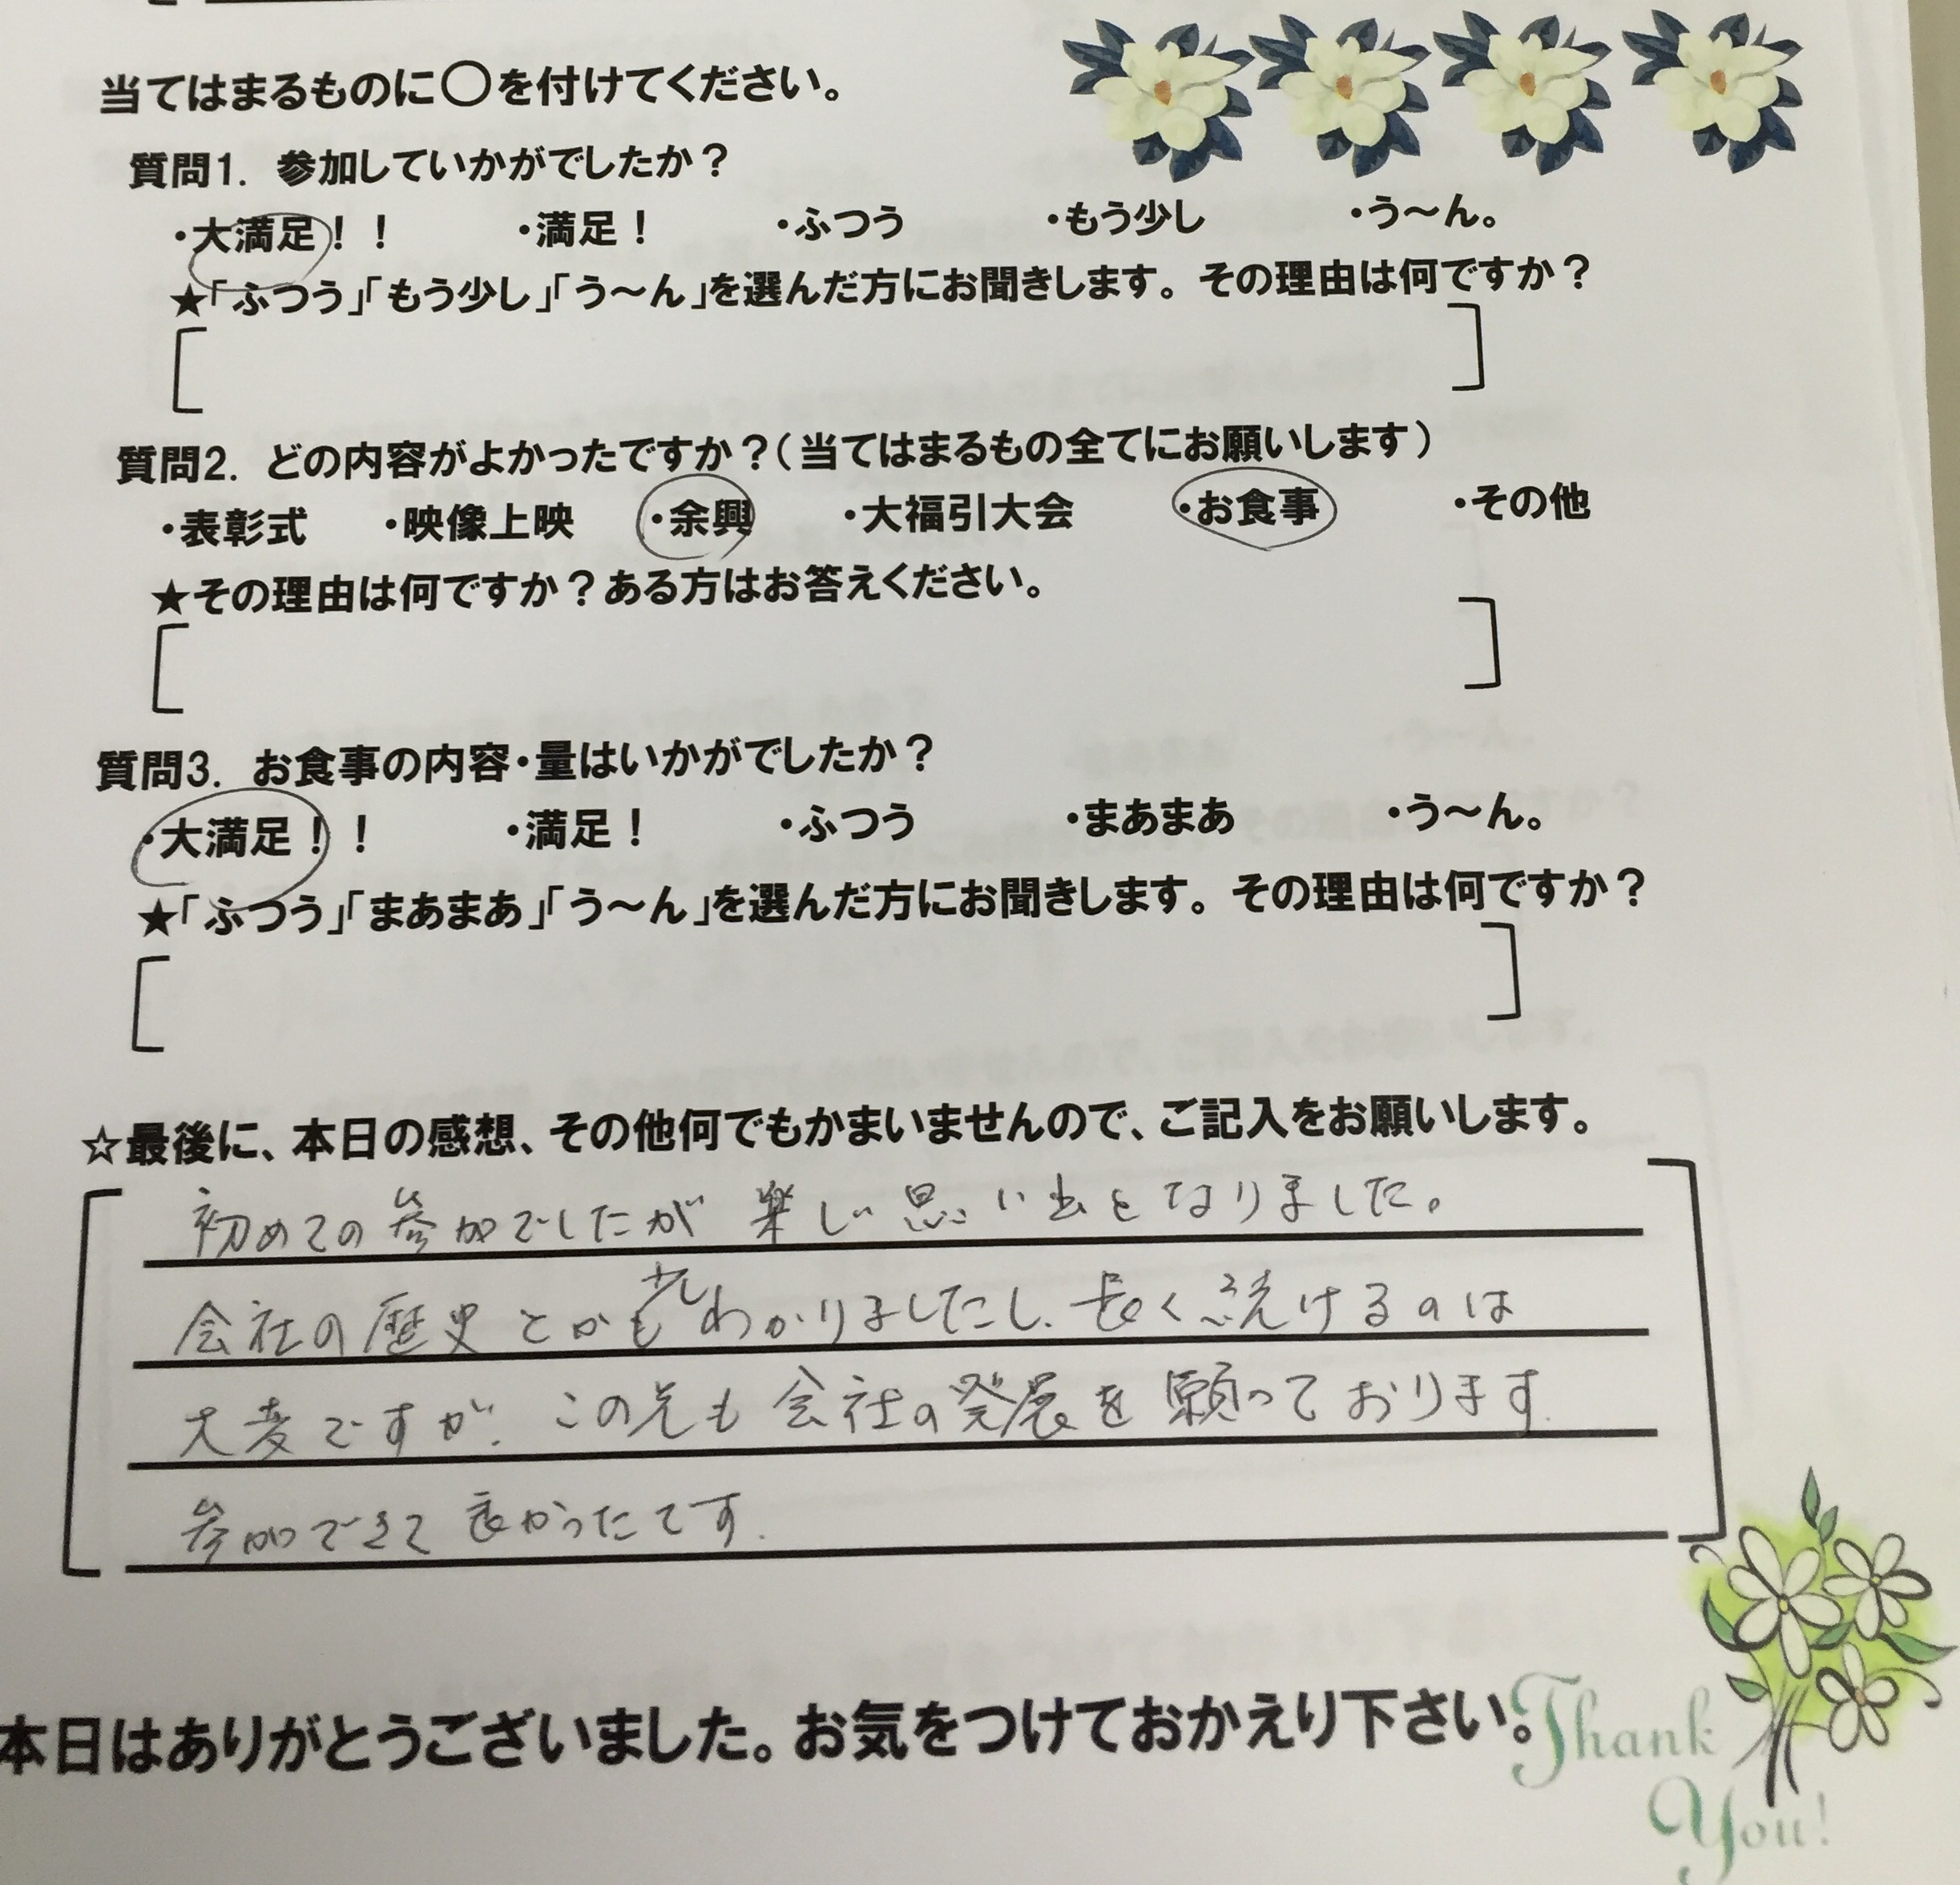 当てはまるものに○を付けてください。
質問1. 参加していかがでしたか？
・大満足！！ ・満足！ ・ふつう ・もう少し ・う～ん。
★「ふつう」「もう少し」「う～ん」を選んだ方にお聞きします。その理由は何ですか？
質問2. どの内容がよかったですか？（当てはまるもの全てにお願いします）
・表彰式 ・映像上映 ・余興 ・大福引大会 ・お食事 ・その他
★その理由は何ですか？ある方はお答えください。
質問3. お食事の内容・量はいかがでしたか？
・大満足！！ ・満足！ ・ふつう ・まあまあ ・う～ん。
★「ふつう」「まあまあ」「う～ん」を選んだ方にお聞きします。その理由は何ですか？
☆最後に、本日の感想、その他何でもかまいませんので、ご記入をお願いします。
初めての参加でしたが楽しい思い出となりました。
会社の歴史とかもわかりましたし、長く続けるのは
大変ですが、この先も会社の発展を願っております.
参加できて良かったです.
本日はありがとうございました。お気をつけておかえり下さい。
Thank
You!